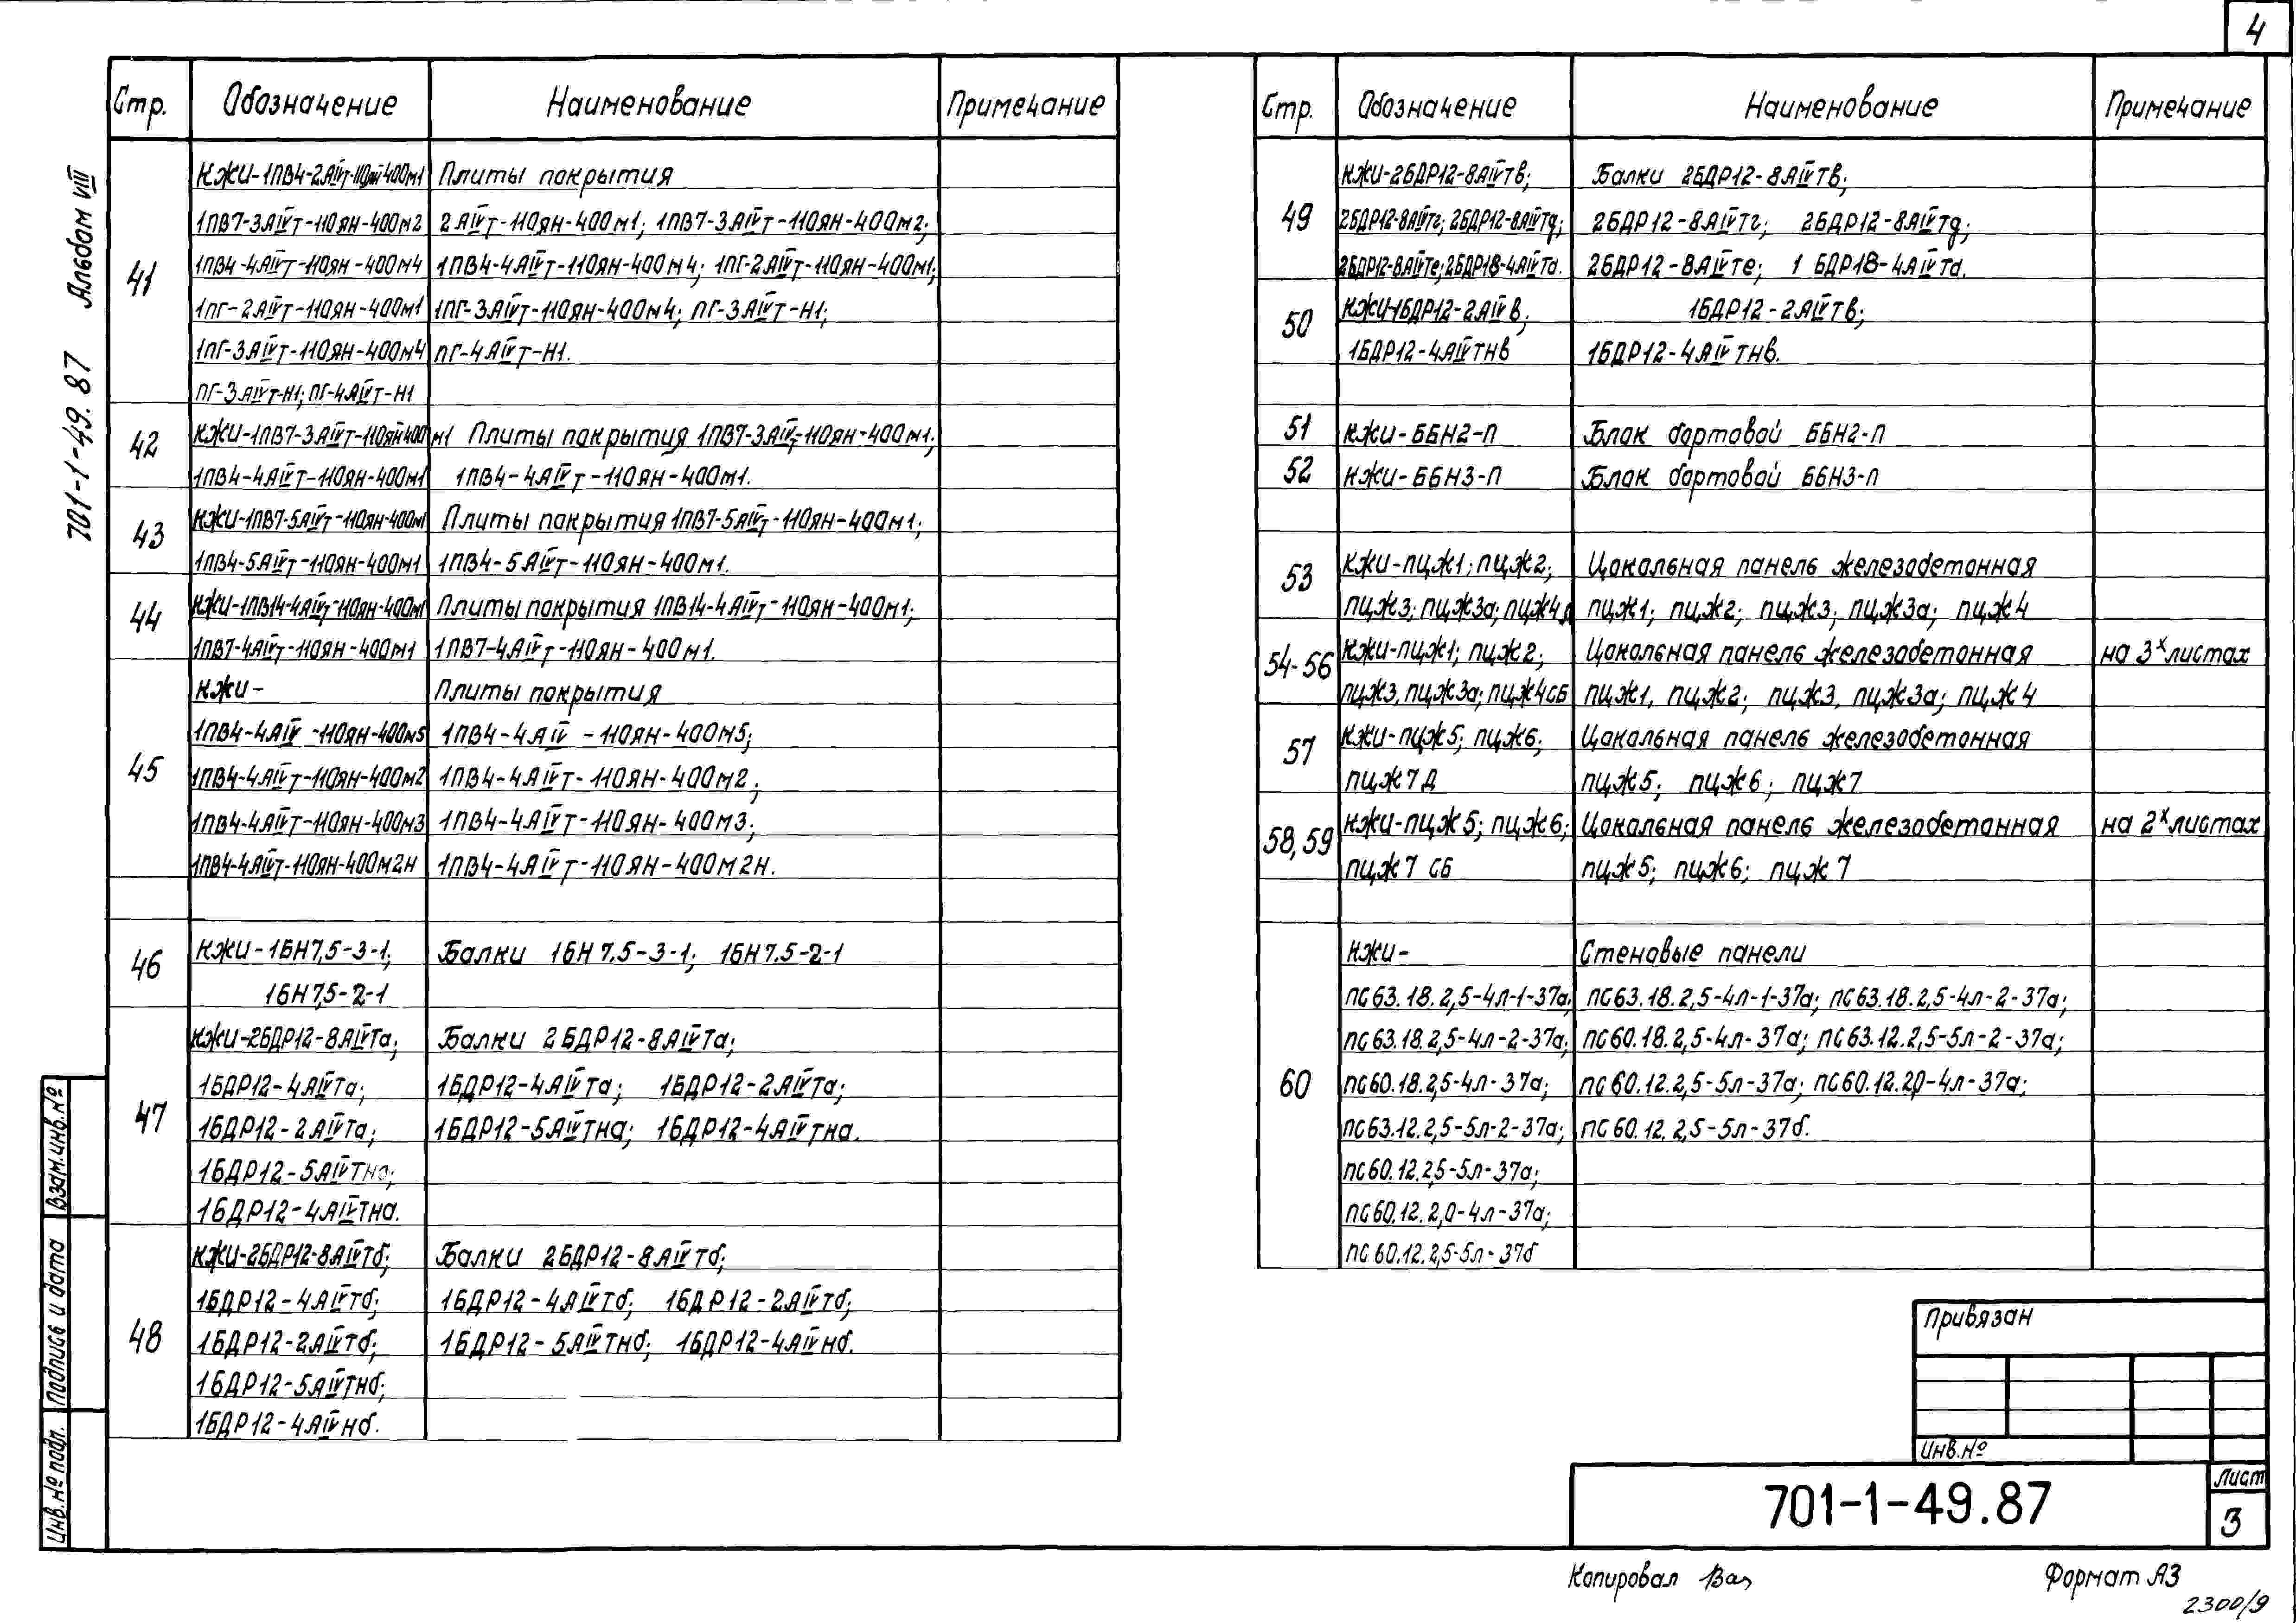 4
701-1-49.87 Альбом VIII
Стр. Обозначение Наименование Примечание
41
КЖИ-1ПВ4-2АIVт-110ЯН-400м1 Плиты покрытия
1ПВ7-3АIVт-110ЯН-400м2 2АIVт-110ЯН-400м1; 1ПВ7-3АIVт-110ЯН-400м2;
1ПВ4-4АIVт-110ЯН-400м4 1ПВ4-4АIVт-110ЯН-400м4; 1ПГ-2АIVт-110ЯН-400м1;
1ПГ-2АIVт-110ЯН-400м1 1ПГ-3АIVт-110ЯН-400м4; ПГ-3АIVт-Н1;
1ПГ-3АIVт-110ЯН-400м4 ПГ-4АIVт-Н1.
ПГ-3АIVт-Н1; ПГ-4АIVт-Н1
42
КЖИ-1ПВ7-3АIVт-110ЯН-400м1 Плиты покрытия 1ПВ7-3АIVт-110ЯН-400м1;
1ПВ4-4АIVт-110ЯН-400м1 1ПВ4-4АIVт-110ЯН-400м1.
43
КЖИ-1ПВ7-5АIVт-110ЯН-400м1 Плиты покрытия 1ПВ7-5АIVт-110ЯН-400м1;
1ПВ4-5АIVт-110ЯН-400м1 1ПВ4-5АIVт-110ЯН-400м1.
44
КЖИ-1ПВ14-4АIVт-110ЯН-400м1 Плиты покрытия 1ПВ14-4АIVт-110ЯН-400м1;
1ПВ7-4АIVт-110ЯН-400м1 1ПВ7-4АIVт-110ЯН-400м1.
45
КЖИ- Плиты покрытия
1ПВ4-4АIV -110ЯН-400м5 1ПВ4-4АIV -110ЯН-400м5;
1ПВ4-4АIVт-110ЯН-400м2 1ПВ4-4АIVт-110ЯН-400м2;
1ПВ4-4АIVт-110ЯН-400м3 1ПВ4-4АIVт-110ЯН-400м3;
1ПВ4-4АIVт-110ЯН-400м2Н 1ПВ4-4АIVт-110ЯН-400м2Н.
46
КЖИ-1БН7,5-3-1; Балки 1БН7.5-3-1; 1БН7.5-2-1
1БН7,5-2-1
47
КЖИ-2БДР12-8АIVТа; Балки 2БДР12-8АIVТа;
1БДР12-4АIVТа; 1БДР12-4АIVТа; 1БДР12-2АIVТа;
1БДР12-2АIVТа; 1БДР12-5АIVТНа; 1БДР12-4АIVТНа.
1БДР12-5АIVТНа;
1БДР12-4АIVТНа.
48
КЖИ-2БДР12-8АIVТб; Балки 2БДР12-8АIVТб;
1БДР12-4АIVТб; 1БДР12-4АIVТб; 1БДР12-2АIVТб;
1БДР12-2АIVТб; 1БДР12-5АIVТНб; 1БДР12-4АIVНб.
1БДР12-5АIVТНб;
1БДР12-4АIVНб.
Стр. Обозначение Наименование Примечание
49
КЖИ-2БДР12-8АIVТв; Балки 2БДР12-8АIVТв;
2БДР12-8АIVТг; 2БДР12-8АIVТд; 2БДР12-8АIVТг; 2БДР12-8АIVТд;
2БДР12-8АIVТе; 2БДР18-4АIVТа. 2БДР12-8АIVТе; 1БДР18-4АIVТа.
50
КЖИ-1БДР12-2АIVв; 1БДР12-2АIVТв;
1БДР12-4АIVТНв 1БДР12-4АIVТНв.
51 КЖИ-ББН2-П Блок бортовой ББН2-П
52 КЖИ-ББН3-П Блок бортовой ББН3-П
53
КЖИ-ПЦЖ1; ПЦЖ2; Цокольная панель железобетонная
ПЦЖ3; ПЦЖ3а; ПЦЖ4Д ПЦЖ1; ПЦЖ2; ПЦЖ3; ПЦЖ3а; ПЦЖ4
54-56
КЖИ-ПЦЖ1; ПЦЖ2; Цокольная панель железобетонная на 3х листах
ПЦЖ3, ПЦЖ3а; ПЦЖ4СБ ПЦЖ1, ПЦЖ2; ПЦЖ3, ПЦЖ3а; ПЦЖ4
57
КЖИ-ПЦЖ5; ПЦЖ6; Цокольная панель железобетонная
ПЦЖ7Д ПЦЖ5; ПЦЖ6; ПЦЖ7
58,59
КЖИ-ПЦЖ5; ПЦЖ6; Цокольная панель железобетонная на 2х листах
ПЦЖ7 СБ ПЦЖ5; ПЦЖ6; ПЦЖ7
60
КЖИ- Стеновые панели
ПС63.18.2,5-4л-1-37а; ПС63.18.2,5-4л-1-37а; ПС63.18.2,5-4л-2-37а;
ПС63.18.2,5-4л-2-37а; ПС60.18.2,5-4л-37а; ПС63.12.2,5-5л-2-37а;
ПС60.18.2,5-4л-37а; ПС60.12.2,5-5л-37а; ПС60.12.2,0-4л-37а;
ПС63.12.2,5-5л-2-37а; ПС60.12.2,5-5л-37б.
ПС60.12.2,5-5л-37а;
ПС60.12.2,0-4л-37а;
ПС60.12.2,5-5л-37б
Взам.инв.№
Подпись и дата
Инв.№ подл.
Привязан
Инв.№
701-1-49.87
Лист
3
Копировал
Формат А3
2300/9